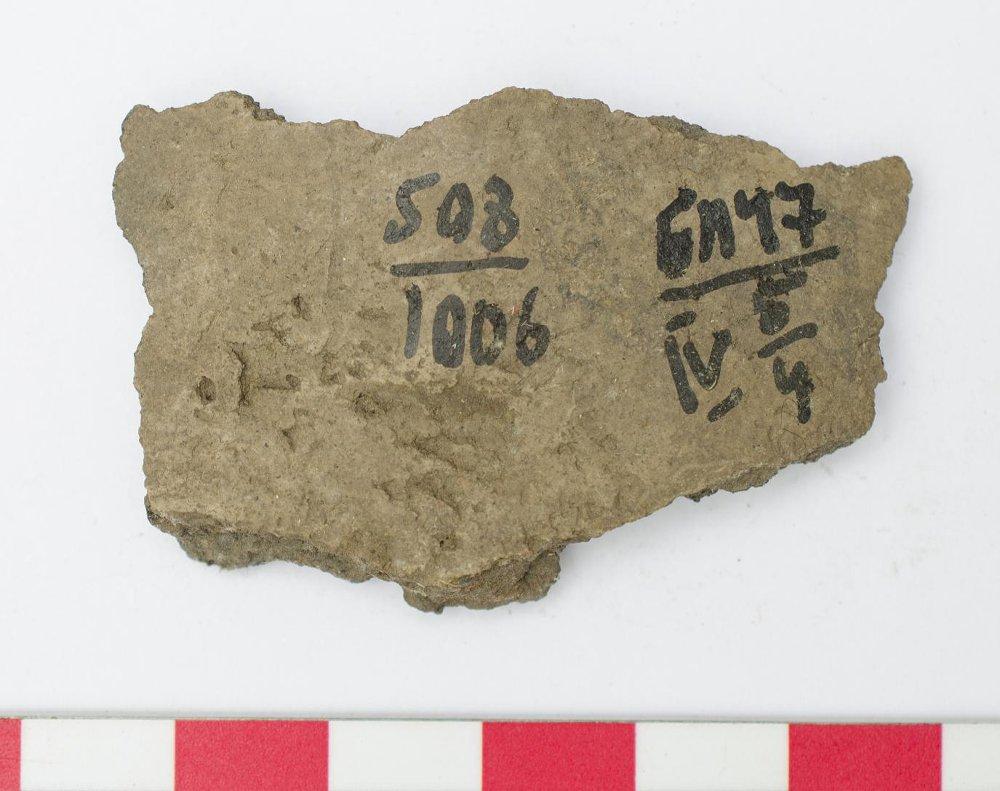 508
1006
БП47
IV Б
4